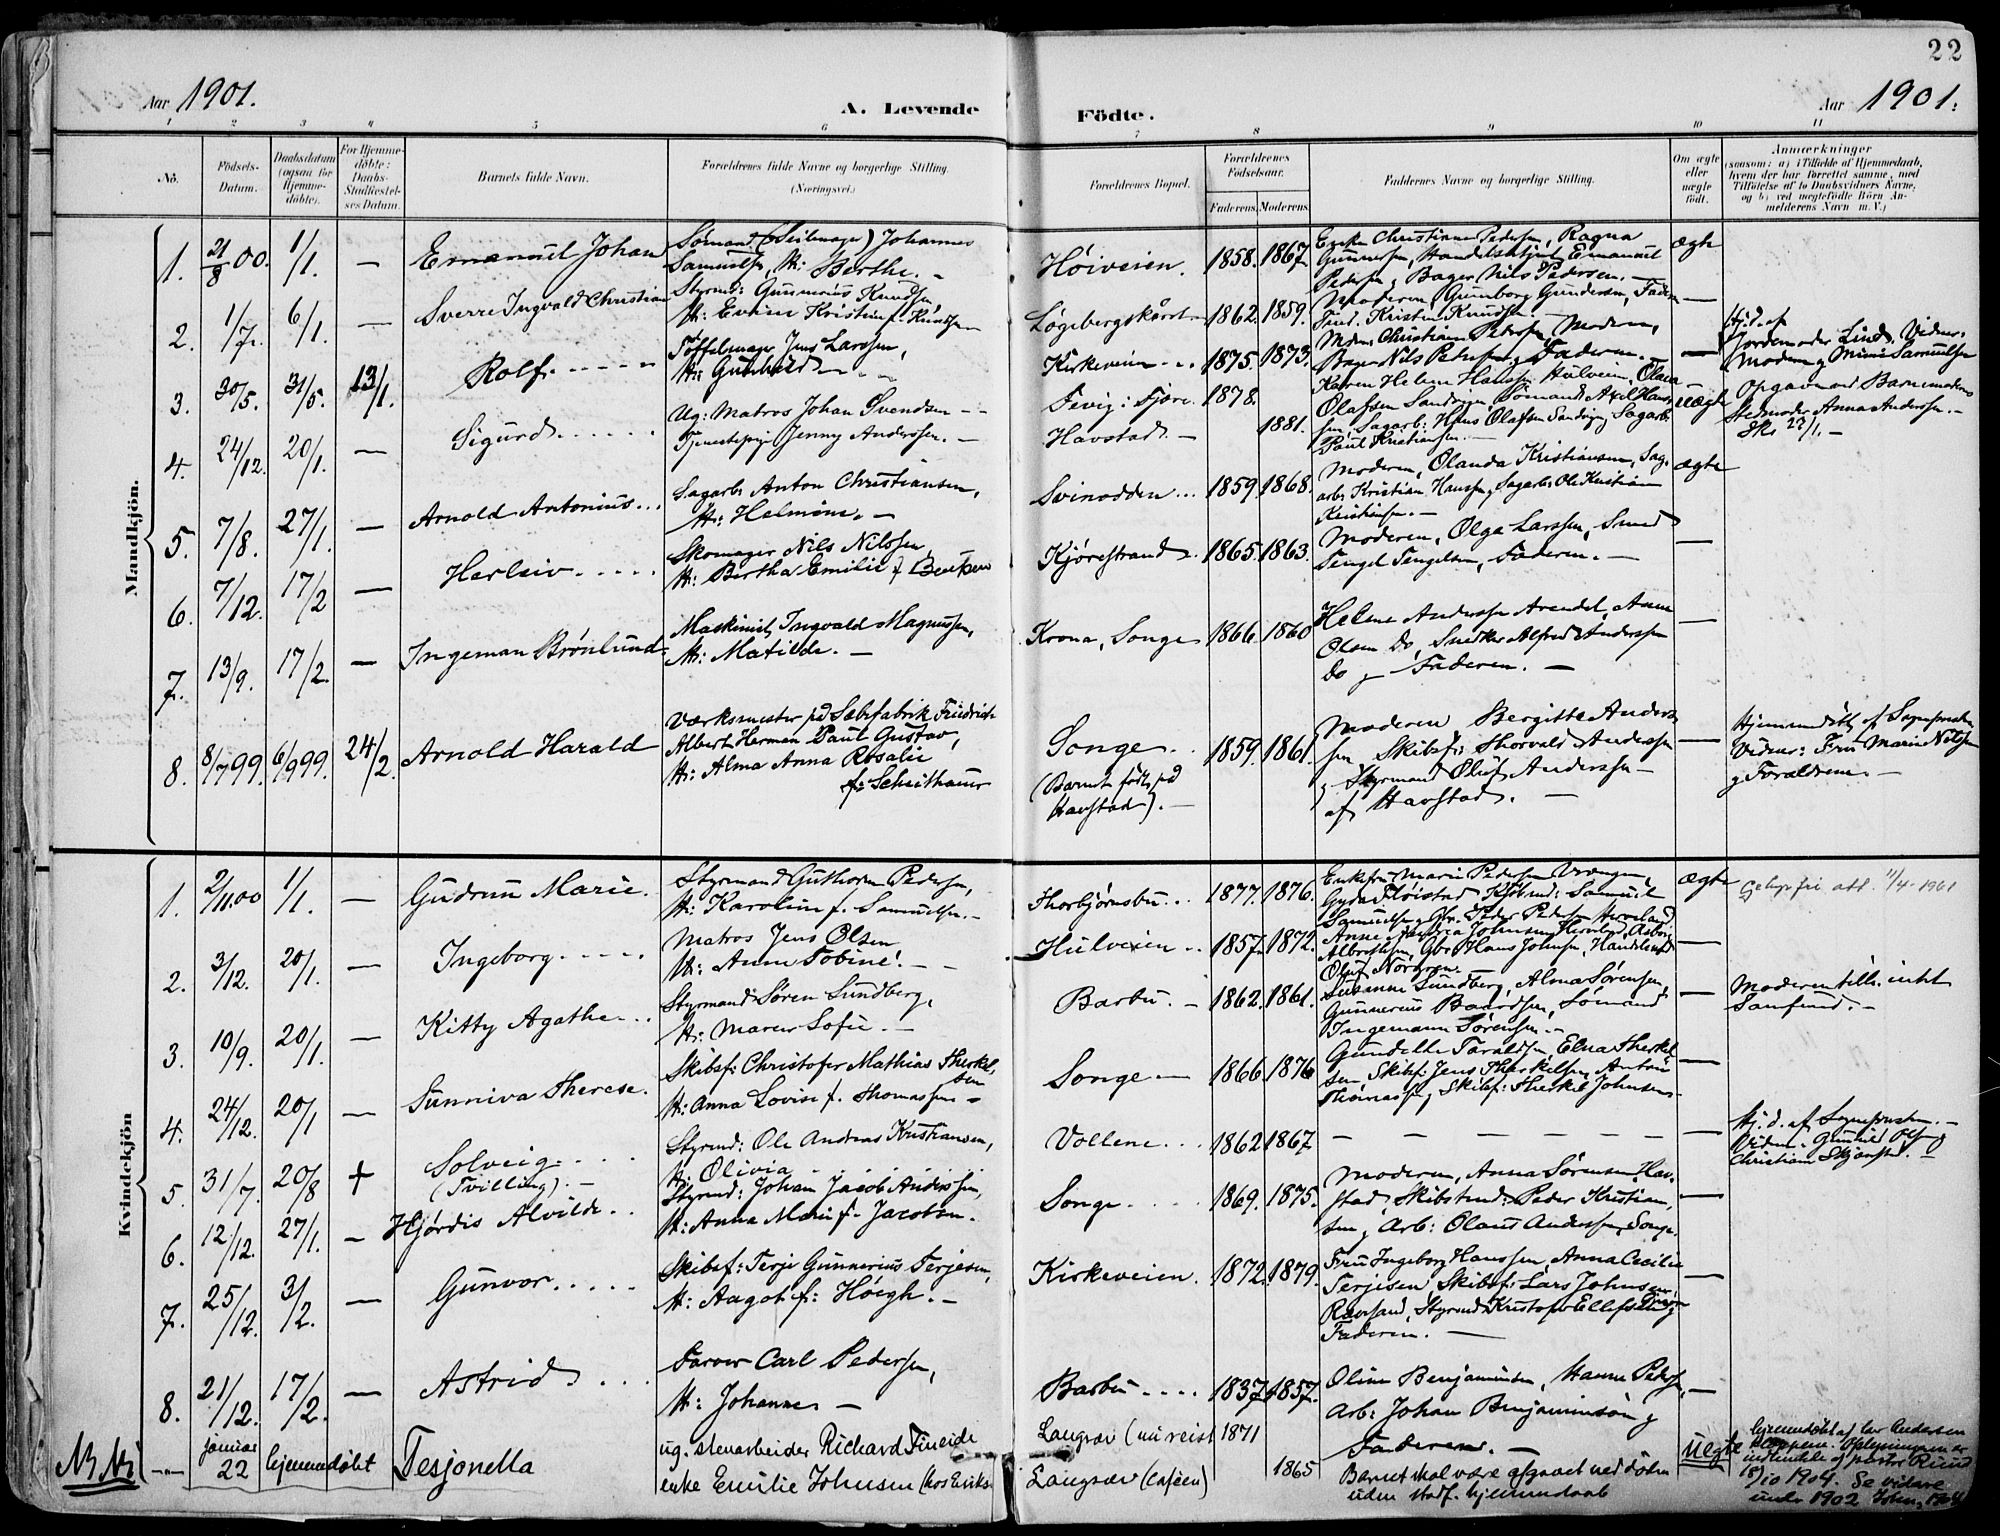 22
Aar 1901.
A. Levende
Födte.
Aar 1901.
1 2 3 4 5 6 7 8 9 10 11
No.
Födsels-
Datum.
Daabsdatum
(ogsaa for
Hjemme-
döbte).
For Hjemme-
döbte:
Daabs-
Stadfæstel-
ses Datum.
Barnets fulde Navn.
Forældrenes fulde Navne og borgerlige Stilling.
(Næringsvei.)
Forældrenes Bopæl.
Forældrenes
Födselsaar.
Faderens. Moderens.
Faddernes Navne og borgerlige Stilling.
Om ægte
eller
uægte
födt.
Anmærkninger
(saasom: a) i Tilfælde af Hjemmedaab,
hvem der har forrettet samme, med
Tilföielse af to Daabsvidners Navne,
og b) ved uægtefödte Börn An-
melderens Navn m. V.)
Mandkjön.
1. 21/8 00. 1/1. — Emanuel Johan
Sømand (Seilmager) Johannes
Samuelsen, H: Berthe. —
Høiveien. 1858. 1867.
Enke Christiane Pedersen, Ragna
Gunnersen, Handelsbetjent Emanuel
Pedersen, Bager Nils Pedersen. —
ægte
2. 1/7. 6/1. — Sverre Ingvald Christian
Styrmd: Gunnerius Knudsen,
H: Evine Kristine f. Knudsen
Løgebergskåret 1862. 1859.
Moderen, Gunborg Gundersen, Faderen
Kristen Knudsen
—
3. 30/5. 31/5. 13/1. Rolf
Tøffelmager Jens Larssen,
H: Gunhild
Kirkeveien 1875. 1873.
Christiane Pedersen, Moderen,
Bager Nils Pedersen, Faderen. —
—
Hj. d. af
Jordemoder Lind. Vidner:
Moderen g Mina Samuelsen
4. 24/12. 20/1. — Sigurd
Ug: Matros Johan Svendsen
Tjenestepige Jenny Anderssen. —
Fevig i Fjære. 1878.
Havstad. — 1881.
Karen Helene Hanssen Hulveien, Olava
Olafsen Sandvigen Sømand Axel Hans-
sen, Sagarb: Hans Olafsen Sandvigen, Sagarb:
Paul Kristiansen. —
uægte
Opgave ved Barnemoderens
Stedmoder Anna Anderssen. —
Skr 22/1. —
5. 7/8. 27/1. — Arnold Antonius
Sagarb: Anton Christiansen,
H: Helmine. —
Svinodden 1859. 1868.
Moderen, Olanda Kristiansen, Sag.
arb: Kristian Hanssen, Sagarb: Ole Kristian
Kristiansen. —
ægte
6. 7/12. 17/2 — Herleiv
Skomager Nils Nilssen
H: Bertha Emilie f. Bentsen
Kjørestrand. 1865. 1863.
Moderen, Olga Larssen, Smed
Tengel Tengelsen, Faderen. —
—
7. 13/9. 17/2. — Ingeman Brönlund
Maskinist Ingvald Magnussen,
H: Matilde. —
Krona, Songe 1866. 1860
Helene Anderssen Arendal, Anne
Olsen Do, Snedker Alfred Anderssen
Do g Faderen. —
—
8. 8/7 99. 6/9 99. 24/2. Arnold Harald
Værksmester på Sæbefabrik Friedrich
Albert Herman Paul Gustav,
H: Alma Anna Rosalie
f: Scheithauer
Songe
(Barnet født på
Havstad). —
1859. 1861.
Moderen Bergitte Anders-
sen Skibsf: Thorvald Anderssen
g Styrmand Oluf Anderssen —
af Havstad. —
—
Hjemmedøbt af Sognepresten
Vidner: Fru Marie Nilssen
g Forældrene. —
Kvindekjön
1. 2/11.00 1/1. — Gudrun Marie.
Styrmand Guthorm Pedersen,
H: Karoline f. Samuelsen. —
Thorbjørnsbu 1877. 1876.
Enkefru Marie Pedersen Vrængen,
Gyda Fløistad Kjøbmd: Samuel
Samuelsen g Gbr. Peder Pedersen Herveland
ægte
11/4-1961
2. 3/12. 20/1. — Ingeborg
Matros Jens Olsen
H: Anne Tobine. —
Hulveien 1857. 1872.
Anne Andrea Johnsen Herveland, Aasborg
Albretsen, Gbr Hans Johnsen, Handlende
Oluf Norgren. —
—
3. 10/9. 20/1. — Kitty Agathe
Styrmand Søren Sundberg,
H: Maren Sofie. —
Barbu. — 1862. 1861.
Susanne Sundberg, Alma Sørensen,
Gunnerius Baardsen, Sømand
Ingemann Sørensen. —
—
Moderen tilh. intet
Samfund. —
4. 24/12. 20/1 — Sunniva Therese.
Skibsf: Christofer Mathias Therkel-
sen
H: Anna Lovise f. Thomassen
Songe — 1866. 1876
Gundelle Taraldsen, Elna Therkel-
sen, Skibsf: Jens Therkelsen, Anton
Thomassen, Skibsf: Therkel Johnsen
—
5. 31/7. 20/8 + Solveig
(Tvilling). —
Styrmd: Ole Andreas Kristiansen,
H: Olivia
Vollene 1862 1867
— — — — — — —
Hj. d. af Sognepresten. —
Vidn: Gunnild Olsen g
Christiane Skjønsfj. —
6. 12/12. 27/1. — Hjördis Alvilde
Styrmd: Johan Jacob Anderssen,
H: Anna Marie f. Jacobsen.
Songe 1869. 1875.
Moderen, Anna Sørensen, Hav-
stad, Skibstmd: Peder Kristian-
sen, Arb: Olaus Anderssen, Songe.
—
7. 25/12. 3/2. — Gunvor
Skibsf: Terje Gunnerius Terjesen,
H: Aagot f: Höegh. —
Kirkeveien. 1872. 1879.
Fru Ingeborg Hanssen, Anna Cecilie
Terjesen, Skibsf: Lars Johnsen,
Ravsand, Styrmd: Kristofer Ellefsen g
Faderen. —
—
8. 21/12. 17/2. — Astrid
Farver Carl Pedersen,
H: Johanne —
Barbu 1837. 1857.
Oline Benjaminsen, Hanne Pedersen,
Arb: Johan Benjaminsen g
Faderen. —
—
N. N. — januar
22 hjemmedøbt Tesjonella
ug. stenarbeider Richard Fineide
enke Emilie Johnsen (hos Eriks.
Langsæv (nu reist 1871
Langsæv (caféen) 1865
Barnet skal være afgaaet ved døden
uden stadf. hjemmedaab
uegte
hjemmedøbt af Andersen
Kloppene. Oplysningen er
indhentet af pastor Ruud
18/10 1904. Se vidare
under 1902 John, 1904